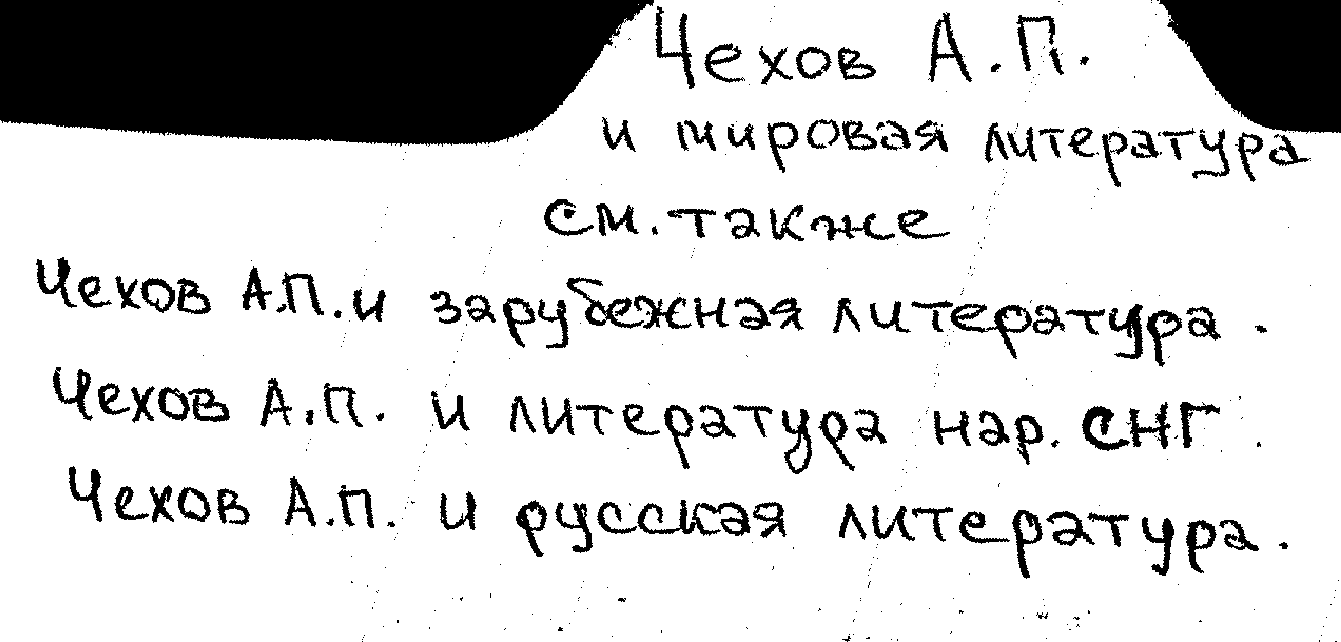 Чехов А.П.
и мировая литература
см. также
Чехов А.П. и зарубежная литература.
Чехов А.П. и литература нар. СНГ.
Чехов А.П. и русская литература.